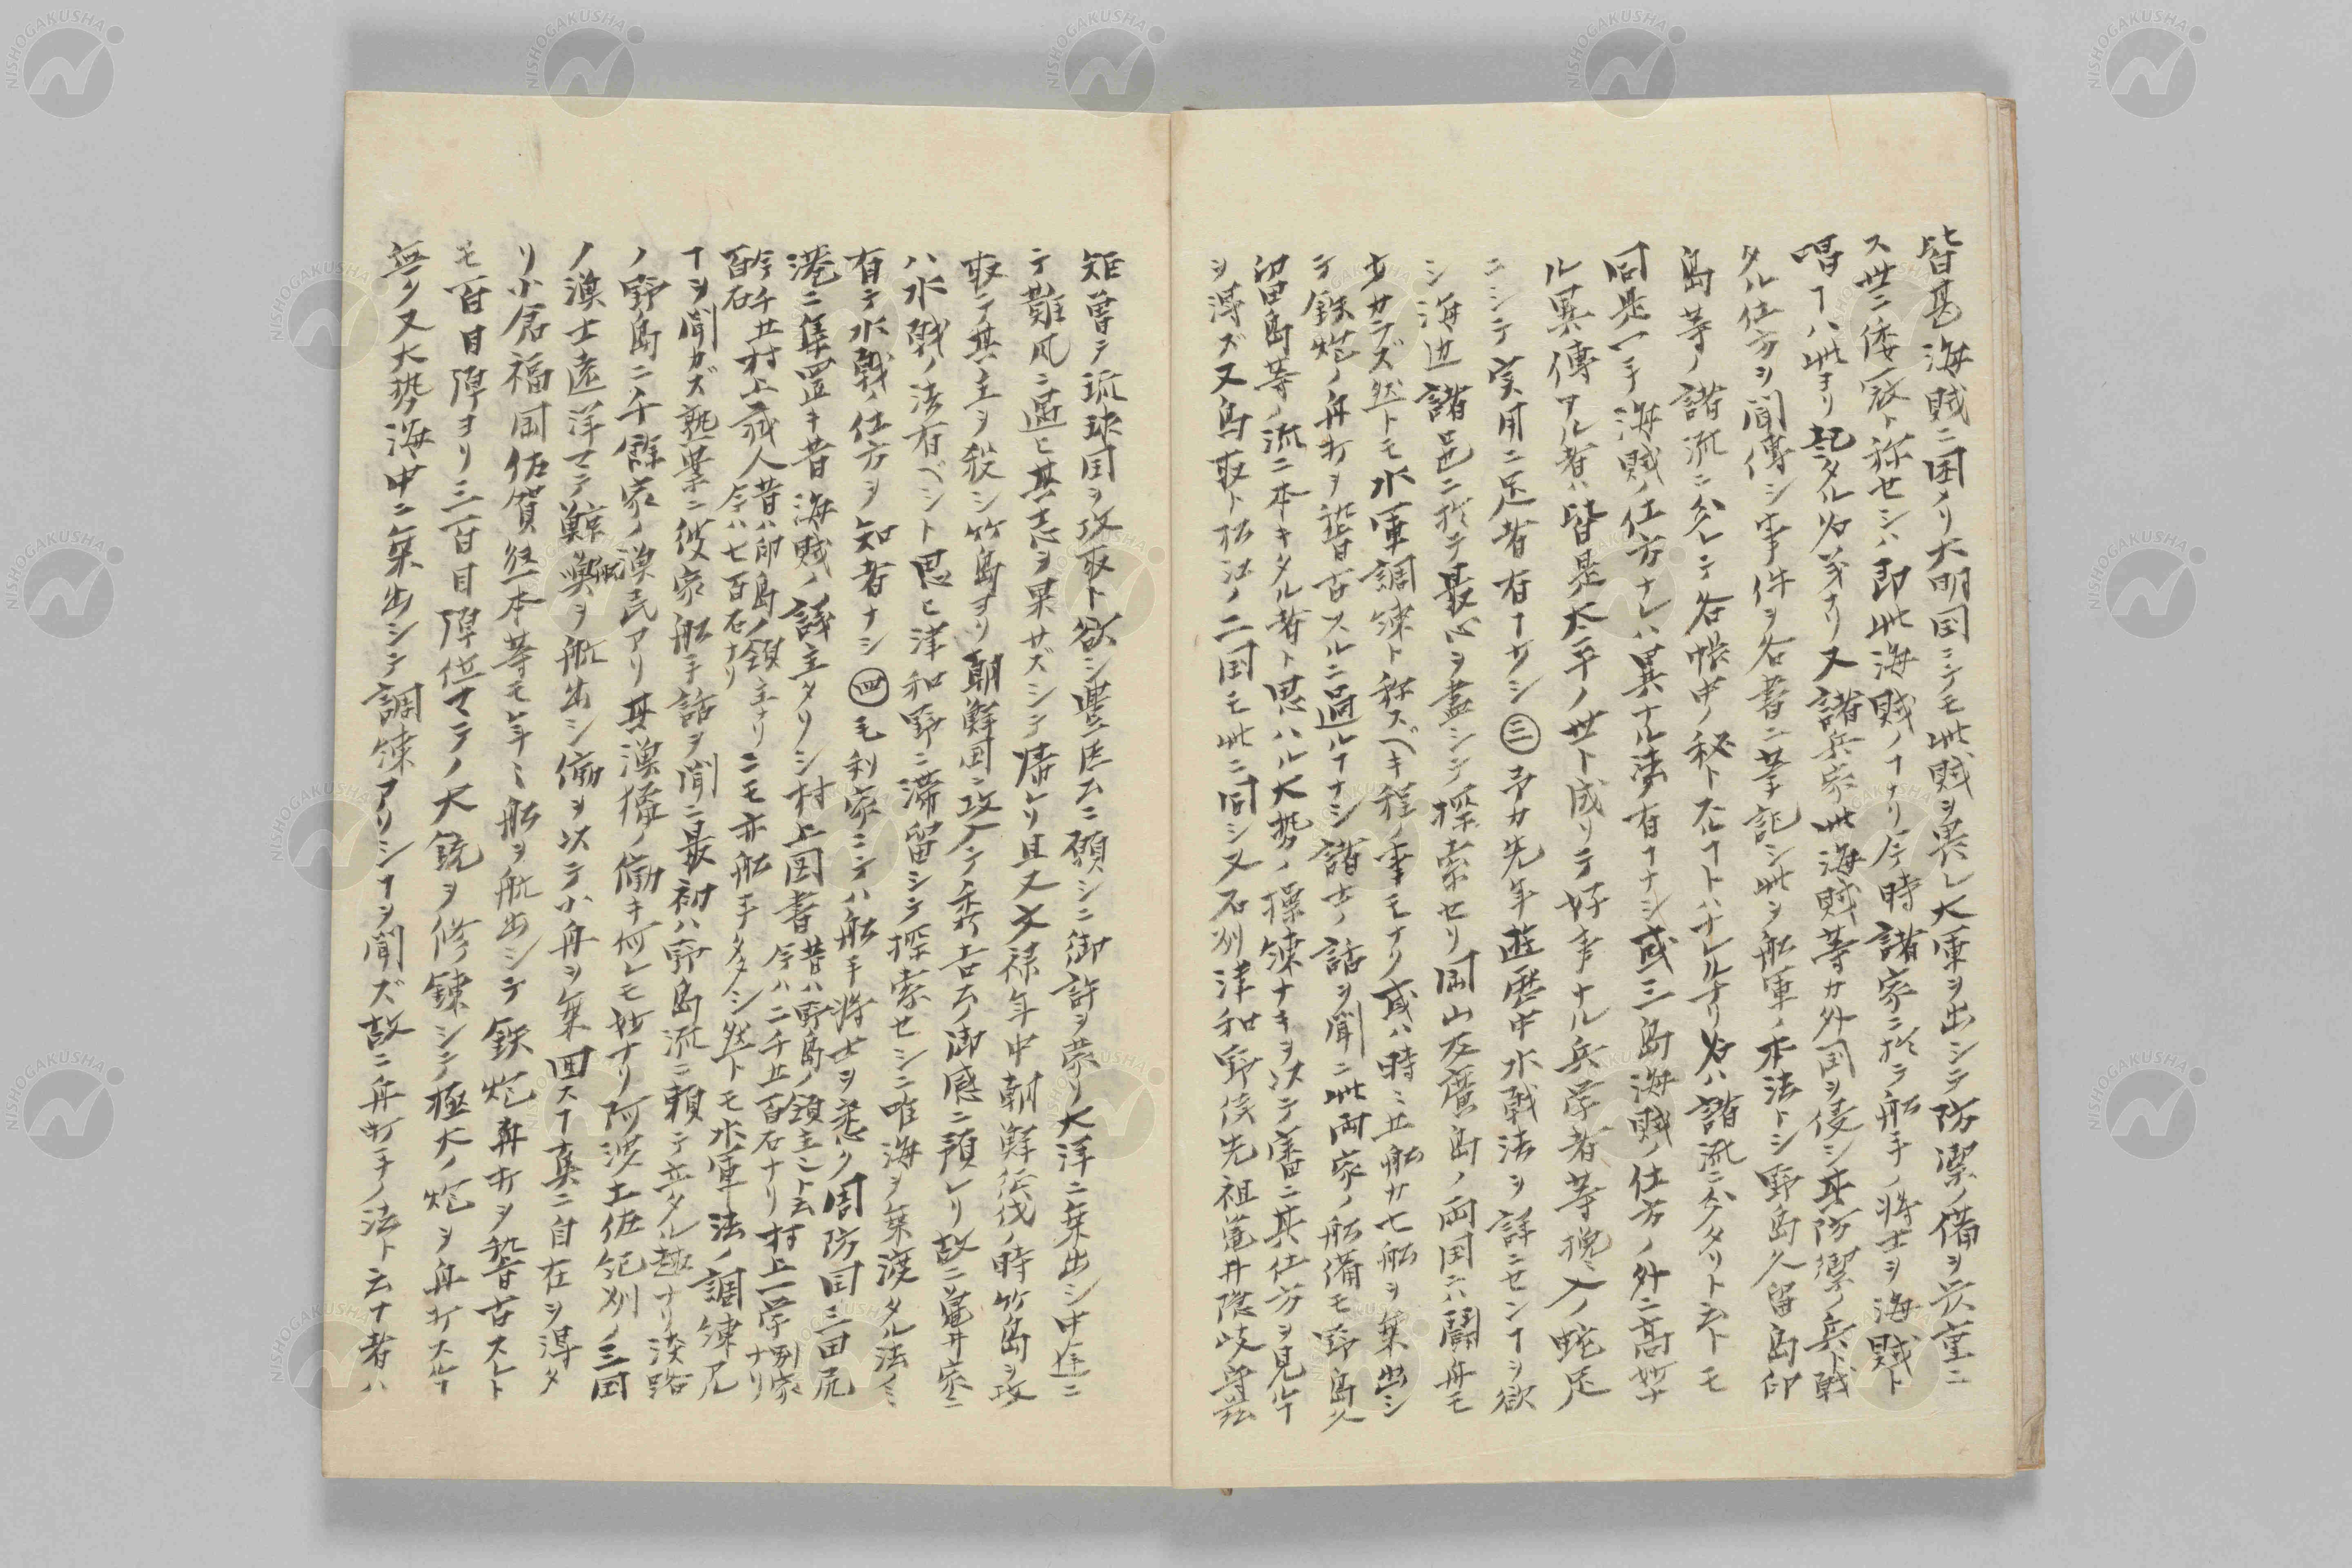 皆甚海賊ニ困メリ大明国ニテモ此賊ヲ畏レ大軍ヲ出シテ防禦ノ備ヲ厳重ニ
ス世ニ倭寇ト称セシハ即此海賊ノヿナリ今時諸家ニ於テ船手ノ将士ヲ海賊ト
唱フハ此ヨリ起タル名義ナリ又諸兵家此海賊等カ外国ヲ侵シ其防禦ノ兵ト戦
タル仕方ヲ聞傳シ事件ヲ各書ニ筆記シ此ヲ船軍ノ本法トシ野島久留島印
島等ノ諸流ニ分レテ各帳中ノ秘トスルヿトハナレルナリ名ハ諸流ニ分タリト云トモ
同是一手海賊ノ仕方ナレハ異ナル法有ヿナシ或三島海賊ノ仕方ノ外ニ高妙ナ
ル異傳アル者ハ皆是太平ノ世ト成リテ好事ナル兵学者等攙入ノ蛇足
ニシテ実用ニ足者有ヿナシ㊂予カ先年遊歴中水戦法ヲ詳ニセンヿヲ欲
シ海辺諸邑ニ於テ最心ヲ盡シテ探索セリ岡山及廣島ノ両国ニハ闘舟モ
少カラズ然トモ水軍調練ト称スベキ程ノ事モナリ或ハ時ミ五船カ七船ヲ乗出シ
テ鉄炮ノ舟打ヲ稽古スルニ過ルヿナシ諸士ノ話ヲ聞ニ此両家ノ船備モ野島久
留島等ノ流ニ本キタル者ト思ハル大勢ノ操練ナキヲ以テ審ニ其仕方ヲ見ルヿ
ヲ得ズ又鳥取ト松江ノ二国モ此ニ同シ又石州津和野侯先祖亀井隠岐守茲
矩曽テ琉球国ヲ攻取ト欲シ豊臣公ニ願シニ御許ヲ蒙リ大洋ニ乗出シ中途ニ
テ難風ニ逼ヒ其志ヲ果サズシテ帰レリ且又文禄年中朝鮮征伐ノ時竹島ヲ攻
取テ其主ヲ殺シ竹島ヨリ朝鮮国ニ攻入テ秀吉公ノ御感ニ預レリ故ニ亀井家ニ
ハ水戦ノ法有ベシト思ヒ津和野ニ滞留シテ探索セシニ唯海ヲ乗渡タル法ノミ
有テ水戦ノ仕方ヲ知者ナシ㊃毛利家ニテハ船手ノ将士ヲ悉ク周防国三田尻
港ニ集置キ昔海賊ノ議主タリシ村上図書昔ハ野島ノ領主ント云今ハ二千五百石ナリ村上一学別家ナリ
今千五百石村上彌人昔ハ印島ノ領主ナリ今ハ七百石ナリニモ亦船手多シ然トモ水軍法ノ調練凡
ヿヲ聞カズ熟業ニ彼家船手話ヲ聞ニ最初ハ野島流ニ頼テ立タル趣ナリ淡路
ノ野島ニ千餘家ノ漁民アリ其漁獲ノ働キ何レモ妙ナリ阿波土佐紀州ノ三国
ノ漁士遠洋マテ鯨漁ヲ航出シ働ヲ以テ小舟ヲ乗回スヿ真ニ自在ヲ得タ
リ小倉福岡佐賀熊本等モ年ミ船ヲ航出シテ鉄炮舟打ヲ稽古スレト
モ百目弾ヨリ三百目弾位マテノ大銃ヲ修錬シテ極大ノ炮ヲ舟打スルヿ
無ク又大勢海中ニ乗出シテ調練アリシヿヲ聞ズ故ニ舟町手ノ法ト云ヿ者ハ